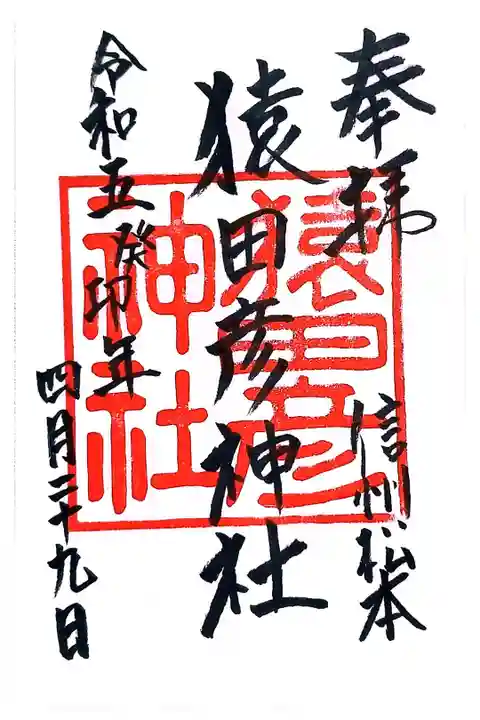 奉拝
信州松本
猿田彦神社
令和五癸卯年
四月二十九日
猿田彦
神社